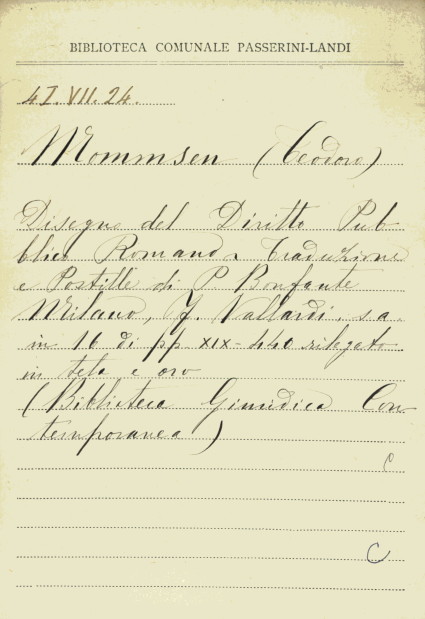 BIBLIOTECA COMUNALE PASSERINI-LANDI
4I.VII.24.
Mommsen (Teodoro)
Disegno del Diritto Pub-
blico Romano. Traduzione
e Postille di P. Bonfante
Milano, F. Vallardi, s.a.
in 16 di pp XIX-440 rilegato
in tela e oro
(Biblioteca Giuridica Con-
temporanea)
C
C